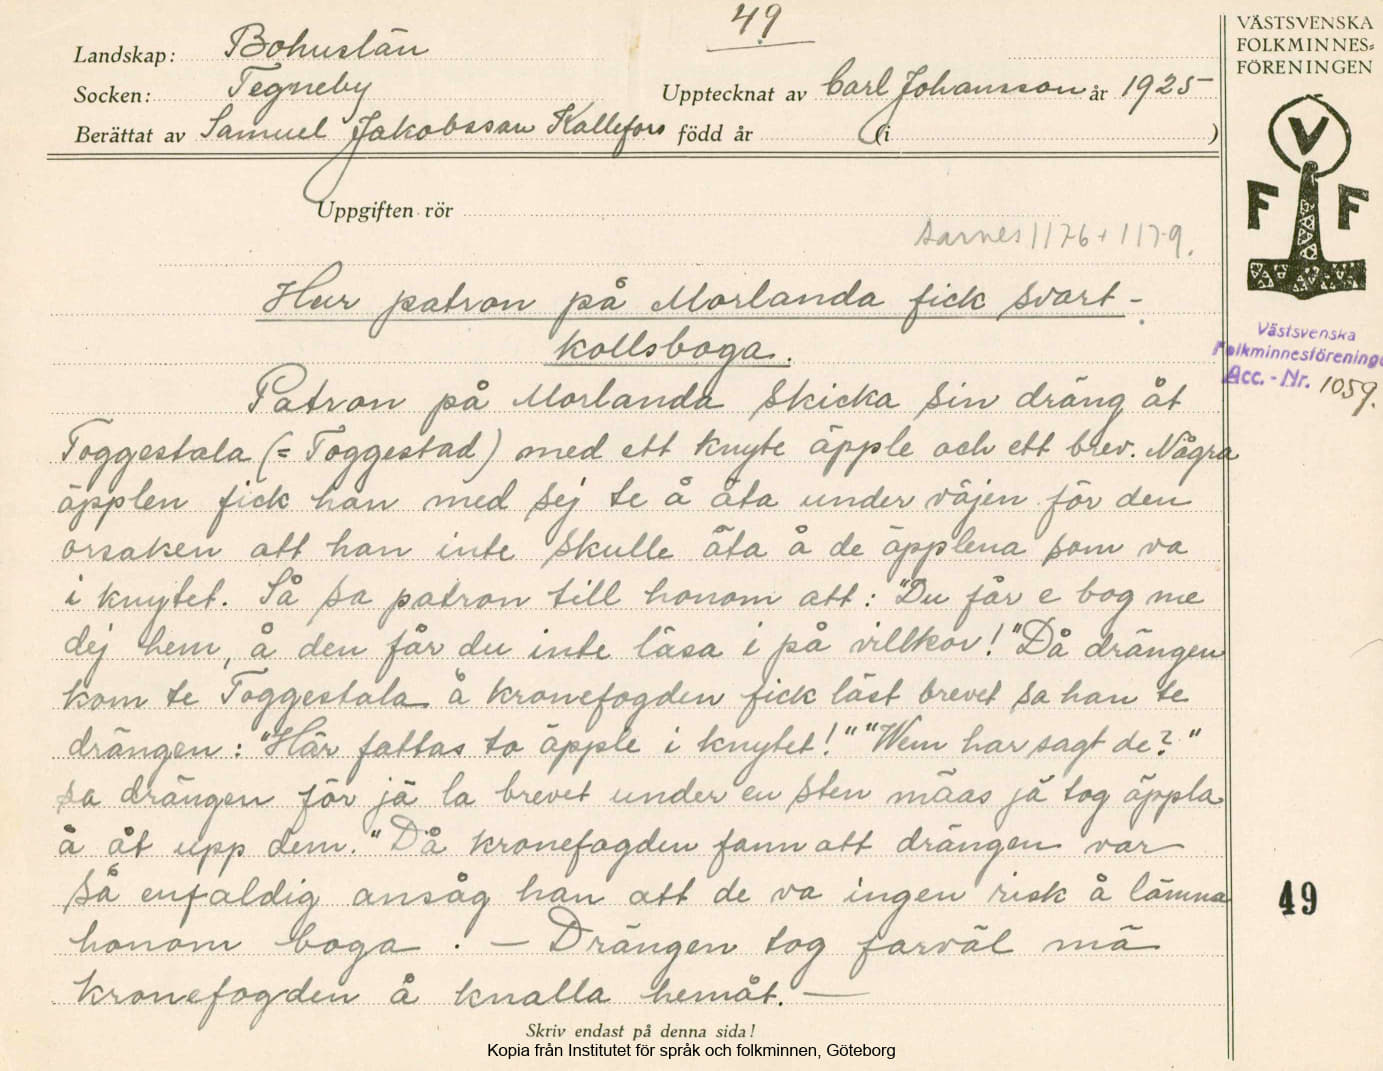 49
Landskap: Bohuslän
Socken: Tegneby
Upptecknat av Carl Johansson år 1925
Berättat av Samuel Jakobsson Kallefors född år (i )
Uppgiften rör
Aarnes 1176 + 1179.
Hur patron på Morlanda fick svart-
kollsboga.
Patron på Morlanda skicka sin dräng åt
Toggestala (= Toggestad) med ett knyte äpple och ett brev. Några
äpplen fick han med sej te å äta under väjen för den
orsaken att han inte skulle äta å de äpplena som va
i knytet. Så sa patron till honom att: "Du får e bog me
dej hem, å den får du inte läsa i på villkor!" Då drängen
kom te Toggestala å kronefogden fick läst brevet sa han te
drängen: "Här fattas to äpple i knytet!" "Wem har sagt de?"
sa drängen för jä la brevet under en sten mäas jä tog äppla
å åt upp dem." Då kronefogden fann att drängen var
så enfaldig ansåg han att de va ingen risk å lämna
honom boga. — Drängen tog farväl mä
kronefogden å knalla hemåt. —
Skriv endast på denna sida!
Kopia från Institutet för språk och folkminnen, Göteborg
VÄSTSVENSKA
FOLKMINNES=
FÖRENINGEN
V
F F
Västsvenska
Folkminnesförening
Acc.-Nr. 1059.
49